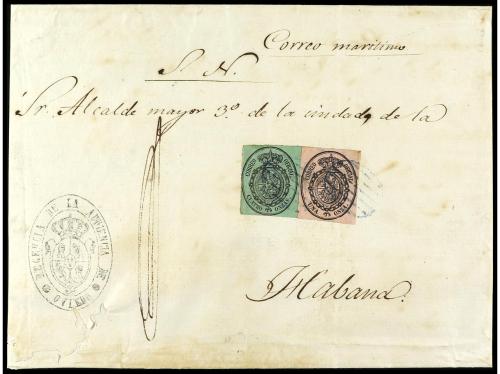 Correo maritimo
S. N.
Sr. Alcalde mayor 3º de la ciudad, de la
CORREO OFICIAL
CUATRO ONZAS
CORREO OFICIAL
UNA ONZA
REGENCIA DE LA AUDIENCIA DE OVIEDO
Habana.